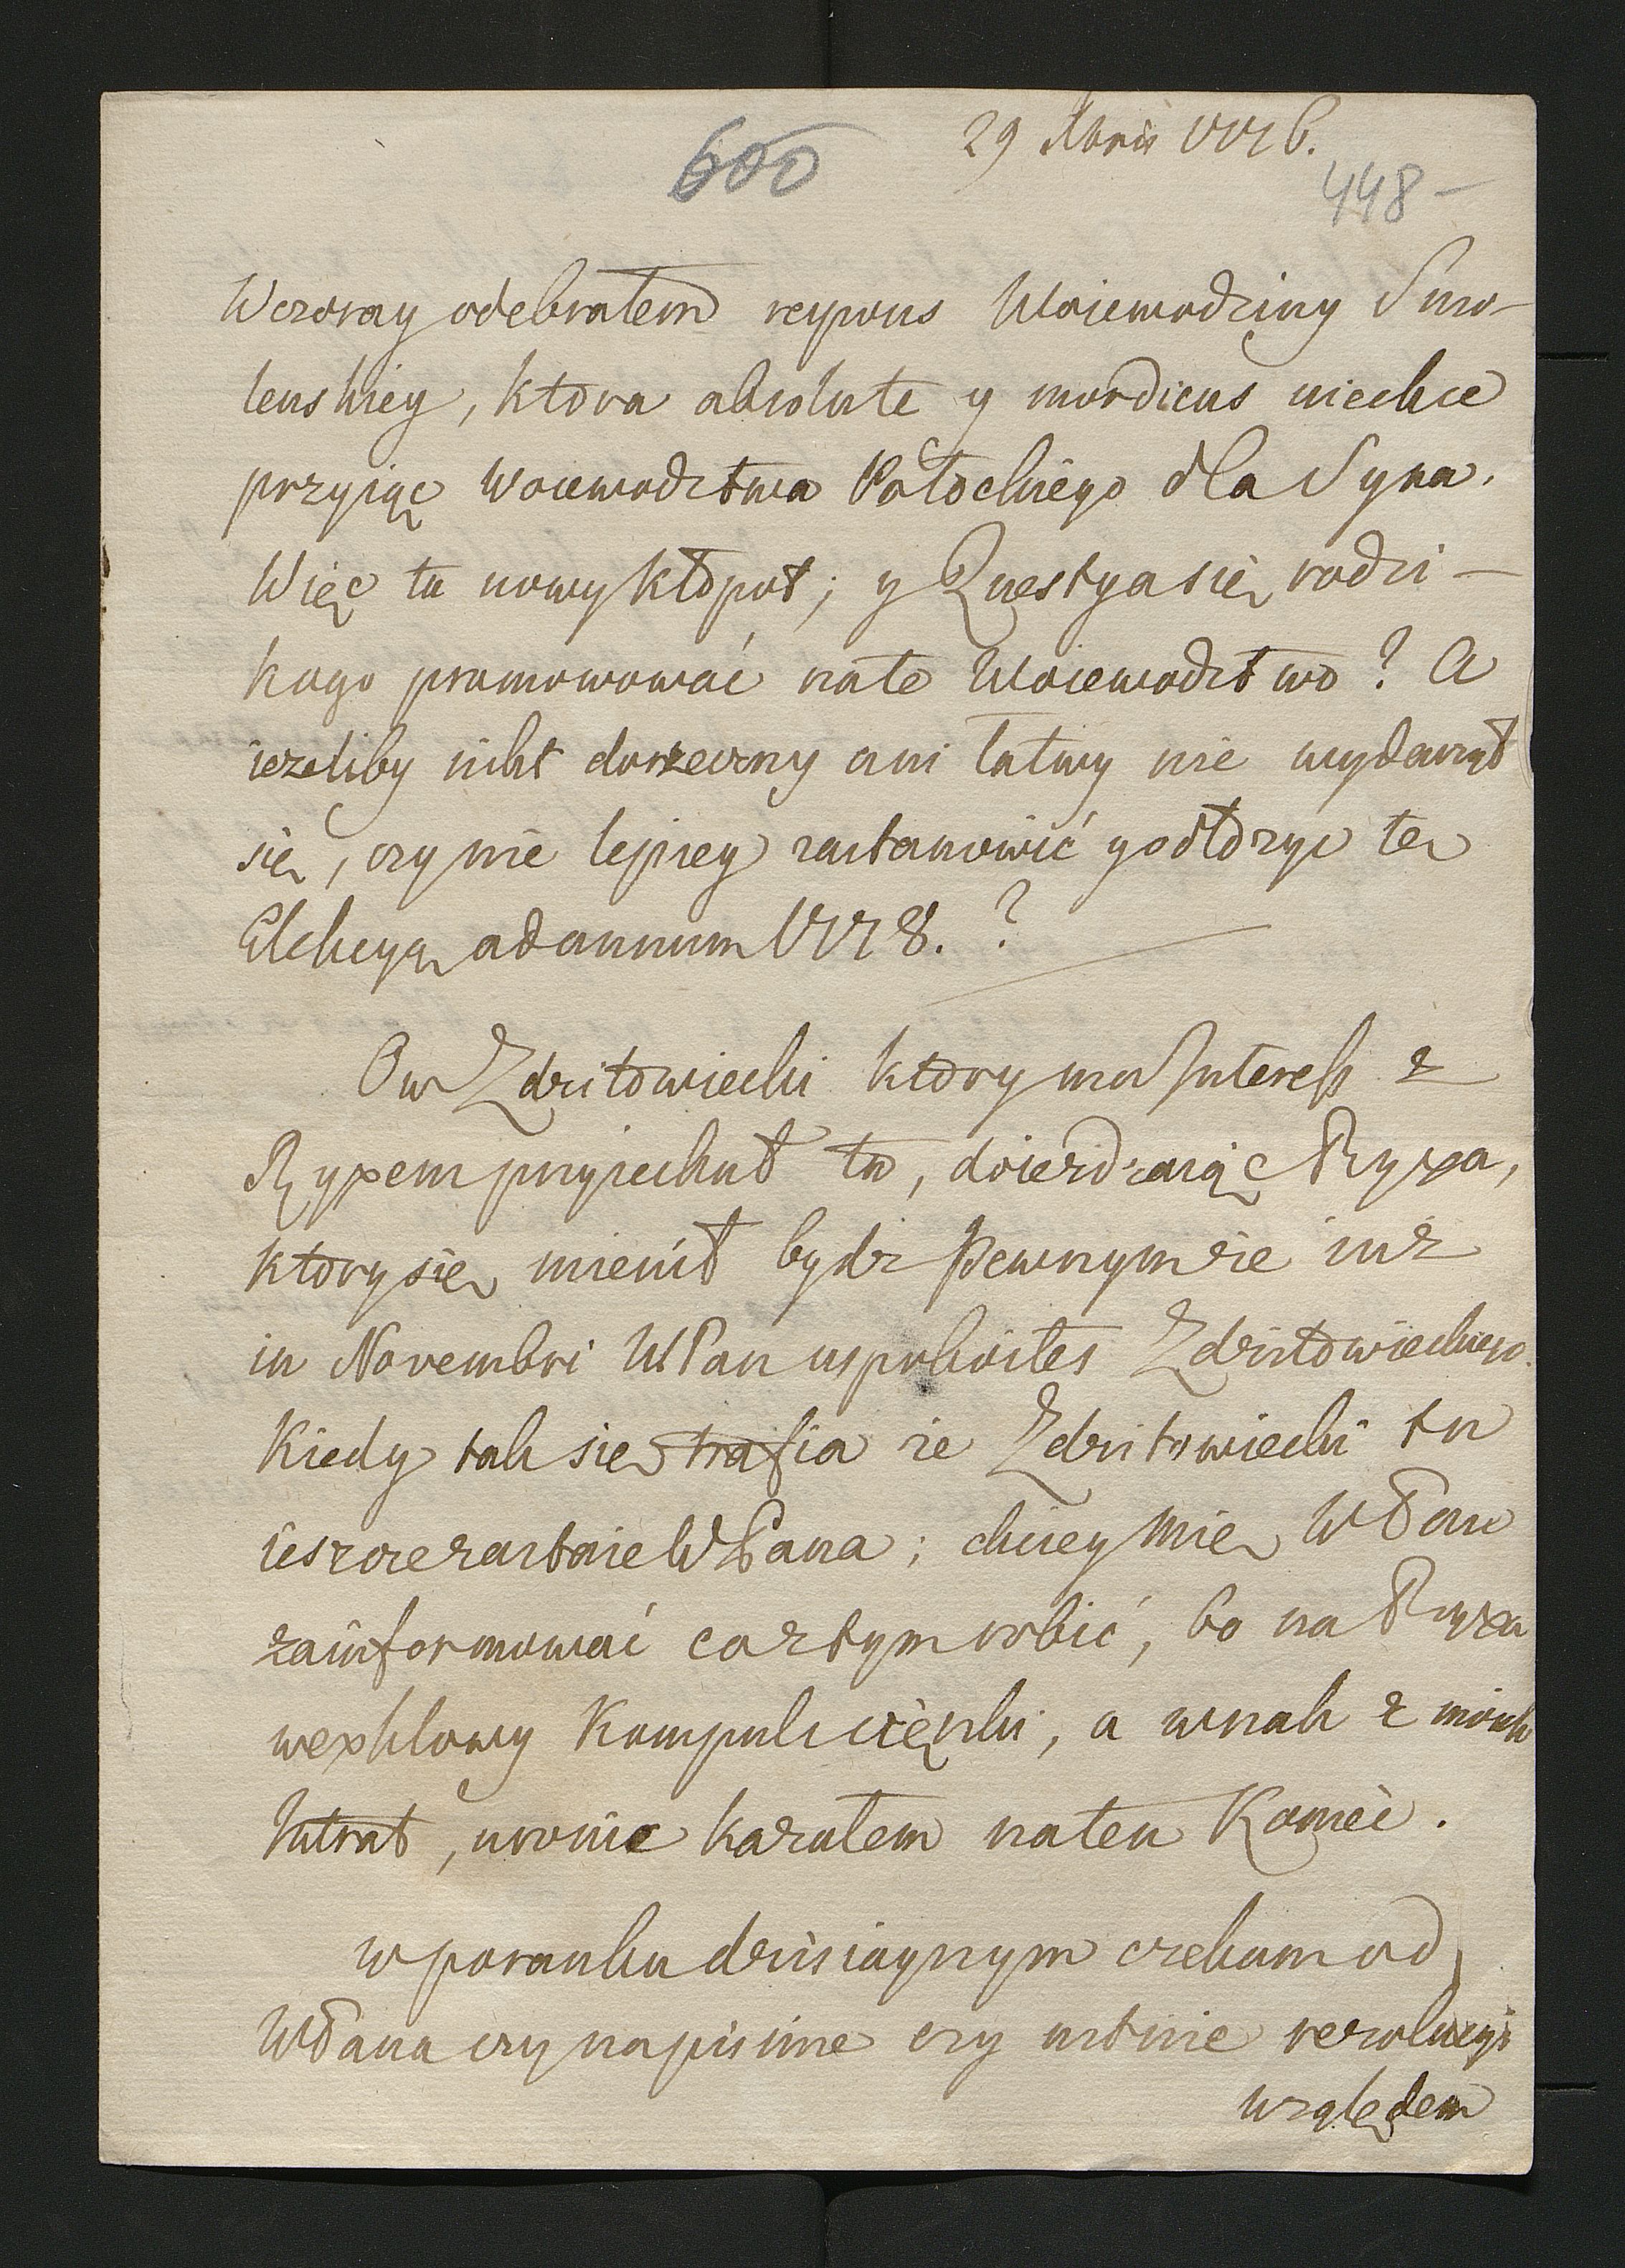 29 Xbris 1776.
600
448 –
Wczoray odebrałem respons Woiewodziny Smo-
lenskiey, ktora absolute y mordicus niechce
przyiąć Woiewodztwa Połockiego dla Syna.
Więc tu nowy kłopot; y Questya się rodzi –
kogo promowować na te Woiewodztwo? A
iezeliby nikt dorzeczny ani łatwy nie wydarzył
się, czy nie lepiey zastanowić y odłozyć tę
Elekcyą ad annum 1778. ?
Ow Zdzitowiecki ktory ma Interess z
Ryxem przyiechał tu, dοieżdzaiąc Ryxa,
ktory się mienił bydz pewnym że iuz
in Novembri WPan uspokoiłes Zdzitowieckiego.
Kiedy tak się trafia ze Zdzitowiecki tu
ieszcze zastaie WPana; chciey mię WPan
zainformować co z tym robić, bo na Ryxa
wexlowy kompuls cięzki, a wszak z moich
Intrat, uronic kazałem na ten Koniec.
w poranku dzisiaynym czekam od
WPana czy na pismie czy ustnie rezolucyi
względem